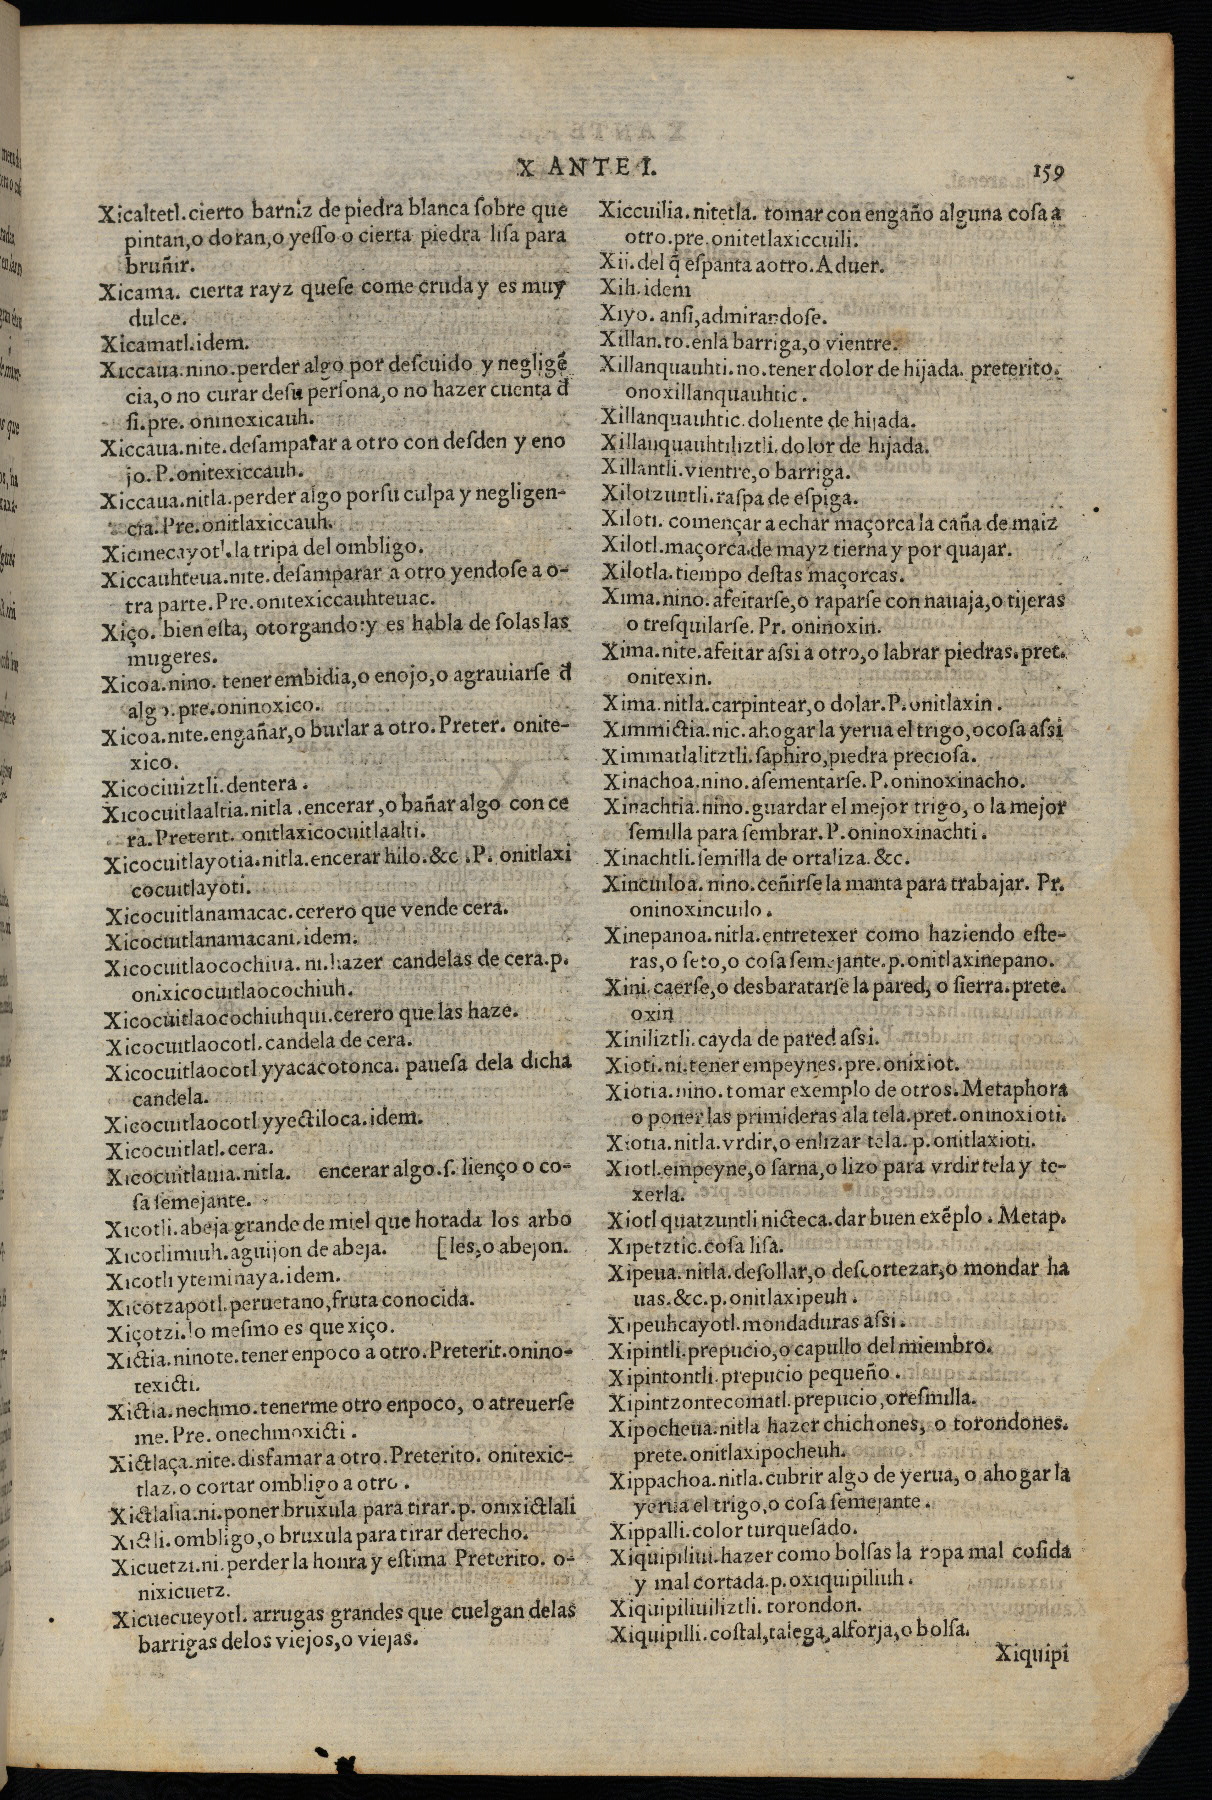 X ANTE I.
159
Xicaltetl. cierto barniz de piedra blanca ſobre que
pintan, o doran, o yeſſo o cierta piedra liſa para
bruñir.
Xicama. cierta rayz queſe come cruda y es muy
dulce.
Xicamatl. idem.
Xiccaua. nino. perder algo por deſcuido y negligẽ
cia, o no curar deſu perſona, o no hazer cuenta đ
ſi. pre. oninoxicauh.
Xiccaua. nite. deſamparar a otro con deſden y eno
jo. P. onitexiccauh.
Xiccaua. nitla. perder algo porſu culpa y negligen-
cia. Pre. onitlaxiccauh.
Xicmecayotl. la tripa del ombligo.
Xiccauhteua. nite. deſamparar a otro yendoſe a o-
tra parte. Pre. onitexiccauhteuac.
Xiço. bien eſta, otorgando: y es habla de ſolas las
mugeres.
Xicoa. nino. tener embidia, o enojo, o agrauiarſe đ
algo. pre. oninoxico.
Xicoa. nite. engañar, o burlar a otro. Preter. onite-
xico.
Xicociuiztli. dentera.
Xicocuitlaaltia. nitla. encerar, o bañar algo con ce
ra. Preterit. onitlaxicocuitlaalti.
Xicocuitlayotia. nitla. encerar hilo. &c. P. onitlaxi
cocuitlayoti.
Xicocuitlanamacac. cerero que vende cera.
Xicocuitlanamacani. idem.
Xicocuitlaocochiua. ni. hazer candelas de cera. p.
onixicocuitlaocochiuh.
Xicocuitlaocochiuhqui. cerero que las haze.
Xicocuitlaocotl. candela de cera.
Xicocuitlaocotl yyacacotonca. paueſa dela dicha
candela.
Xicocuitlaocotl yyectiloca. idem.
Xicocuitlatl. cera.
Xicocuitlauia. nitla. encerar algo. ſ. lienço o co-
ſa ſemejante.
Xicotli. abeja grande de miel que horada los arbo
Xicotlimiuh. aguijon de abeja. [les, o abejon.
Xicotli yteminaya. idem.
Xicotzapotl. peruetano, fruta conocida.
Xiçotzi. lo meſmo es que xiço.
Xictia. ninote. tener enpoco a otro. Preterit. onino-
texicti.
Xictia. nechmo. tenerme otro enpoco, o atreuerſe
me. Pre. onechmoxicti.
Xictlaça. nite. disfamar a otro. Preterito. onitexic-
tlaz. o cortar ombligo a otro.
Xictlalia. ni. poner bruxula para tirar. p. onixictlali
Xictli. ombligo, o bruxula para tirar derecho.
Xicuetzi. ni. perder la honra y eſtima Preterito. o-
nixicuetz.
Xicuecueyotl. arrugas grandes que cuelgan delas
barrigas delos viejos, o viejas.
Xiccuilia. nitetla. tomar con engaño alguna coſa a
otro. pre. onitetlaxiccuili.
Xii. del q̃ eſpanta aotro. Aduer.
Xih. idem
Xiyo. anſi, admirandoſe.
Xillan. to. enla barriga, o vientre.
Xillanquauhti. no. tener dolor de hijada. preterito.
onoxillanquauhtic.
Xillanquauhtic. doliente de hijada.
Xillanquauhtiliztli. dolor de hijada.
Xillantli. vientre, o barriga.
Xilotzuntli. raſpa de eſpiga.
Xiloti. començar a echar maçorca la caña de maiz
Xilotl. maçorca. de mayz tierna y por quajar.
Xilotla. tiempo deſtas maçorcas.
Xima. nino. afeitarſe, o raparſe con nauaja, o tijeras
o treſquilarſe. Pr. oninoxin.
Xima. nite. afeitar aſsi a otro, o labrar piedras. pret.
onitexin.
Xima. nitla. carpintear, o dolar. P. onitlaxin.
Ximmictia. nic. ahogar la yerua el trigo, o coſa aſsi
Ximmatlalitztli. ſaphiro, piedra precioſa.
Xinachoa. nino. aſementarſe. P. oninoxinacho.
Xinachtia. nino. guardar el mejor trigo, o la mejor
ſemilla para ſembrar. P. oninoxinachti.
Xinachtli. ſemilla de ortaliza. &c.
Xincuiloa. nino. ceñirſe la manta para trabajar. Pr.
oninoxincuilo.
Xinepanoa. nitla. entretexer como haziendo eſte-
ras, o ſeto, o coſa ſemejante. p. onitlaxinepano.
Xini. caerſe, o desbaratarſe la pared, o ſierra. prete.
oxin
Xiniliztli. cayda de pared aſsi.
Xioti. ni. tener empeynes. pre. onixiot.
Xiotia. nino. tomar exemplo de otros. Metaphora
o poner las primideras ala tela. pret. oninoxioti.
Xiotia. nitla. vrdir, o enlizar tela. p. onitlaxioti.
Xiotl. empeyne, o ſarna, o lizo para vrdir tela y te-
xerla.
Xiotl quatzuntli nicteca. dar buen exẽplo. Metap.
Xipetztic. coſa liſa.
Xipeua. nitla. deſollar, o deſcortezar, o mondar ha
uas. &c. p. onitlaxipeuh.
Xipeuhcayotl. mondaduras aſsi.
Xipintli. prepucio, o capullo del miembro.
Xipintontli. prepucio pequeño.
Xipintzontecomatl. prepucio, oreſmilla.
Xipocheua. nitla hazer chichones, o torondones.
prete. onitlaxipocheuh.
Xippachoa. nitla. cubrir algo de yerua, o ahogar la
yerua el trigo, o coſa ſemejante.
Xippalli. color turqueſado.
Xiquipiliui. hazer como bolſas la ropa mal coſida
y mal cortada. p. oxiquipiliuh.
Xiquipiliuiliztli. torondon.
Xiquipilli. coſtal, talega, alforja, o bolſa.
Xiquipi